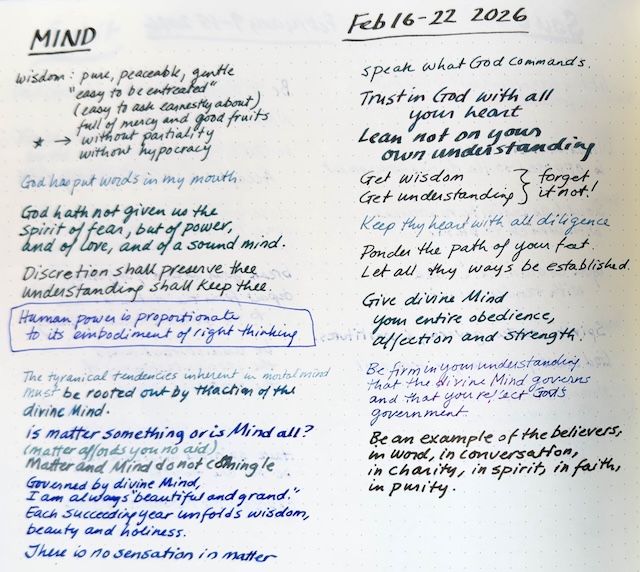 MIND
wisdom: pure, peaceable, gentle
"easy to be entreated"
(easy to ask earnestly about)
full of mercy and good fruits
★ → without partiality
without hypocracy
God has put words in my mouth
God hath not given us the
spirit of fear, but of power,
and of love, and of a sound mind.
Discretion shall preserve thee
understanding shall keep thee.
Human power is proportionate
to its embodiment of right thinking
The tyranical tendencies inherent in mortal mind
must be rooted out by the action of the
divine Mind.
is matter something or is Mind all?
(matter affords you no aid)
Matter and Mind do not comingle
Governed by divine Mind,
I am always "beautiful and grand."
Each succeeding year unfolds wisdom,
beauty and holiness.
There is no sensation in matter
Feb 16-22 2026
speak what God commands.
Trust in God with all
your heart
Lean not on your
own understanding
Get wisdom
Get understanding } forget
it not!
Keep thy heart with all diligence
Ponder the path of your feet.
Let all thy ways be established.
Give divine Mind
your entire obedience,
affection and strength.
Be firm in your understanding
that the divine Mind governs
and that you reflect God's
government.
Be an example of the believers,
in word, in conversation,
in charity, in spirit, in faith,
in purity.